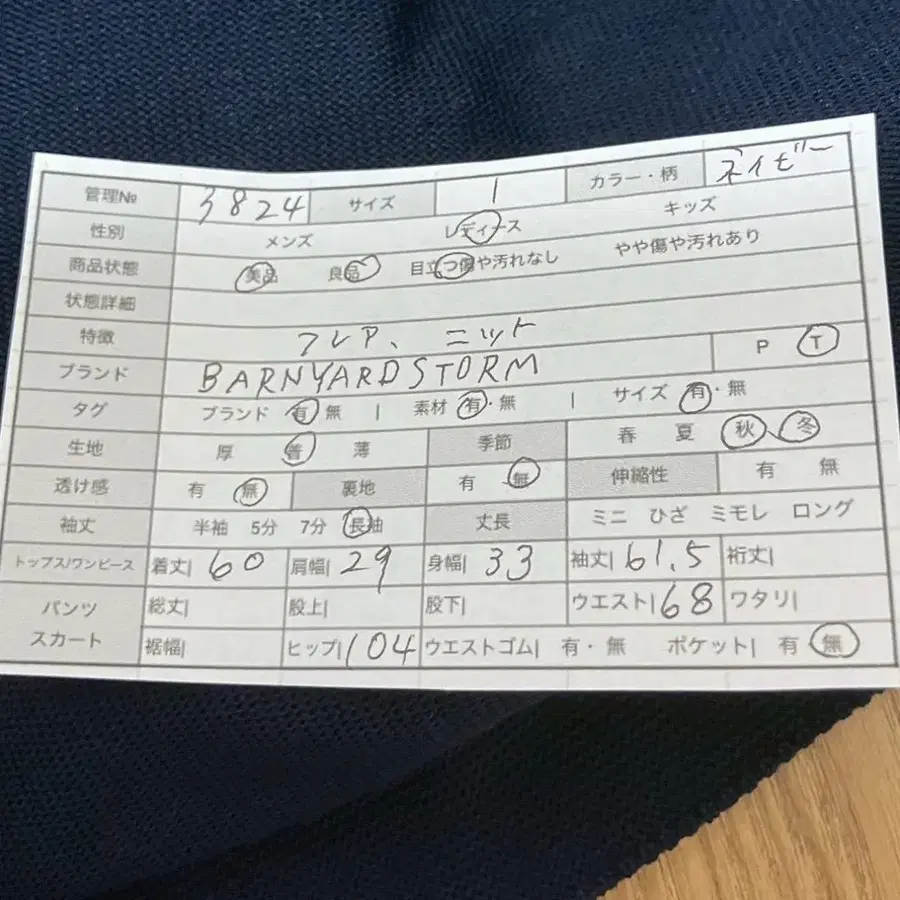 管理№ 3824 サイズ 1 カラー・柄 ネイビー
性別 メンズ レディース キッズ
商品状態 美品 良品 目立つ傷や汚れなし やや傷や汚れあり
状態詳細
特徴 フレア、ニット
ブランド BARNYARDSTORM P T
タグ ブランド 有・無 | 素材 有・無 | サイズ 有・無
生地 厚 普 薄 季節 春 夏 秋 冬
透け感 有 無 裏地 有 無 伸縮性 有 無
袖丈 半袖 5分 7分 長袖 丈長 ミニ ひざ ミモレ ロング
トップス/ワンピース 着丈| 60 肩幅| 29 身幅| 33 袖丈| 61.5 裄丈|
パンツ スカート 総丈| 股上| 股下| ウエスト| 68 ワタリ|
裾幅| ヒップ| 104 ウエストゴム| 有・無 ポケット| 有 無